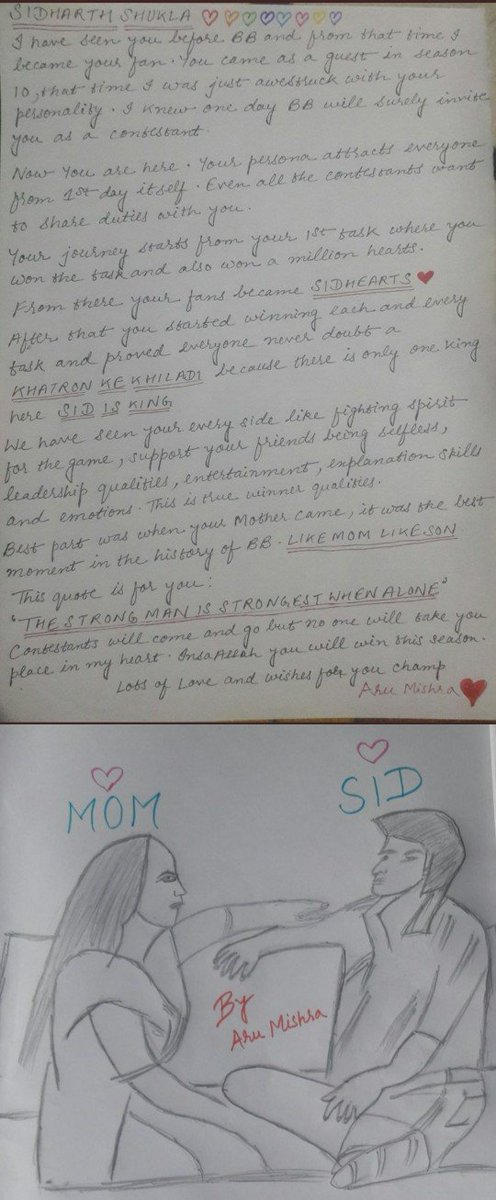 SIDHARTH SHUKLA
I have seen you before BB and from that time I
became your fan. You came as a guest in season
10, that time I was just awestruck with your
personality. I knew one day BB will surely invite
you as a contestant.
Now You are here. Your persona attracts everyone
from 1st day itself. Even all the contestants want
to share duties with you.
Your journey starts from your 1st task where you
won the task and also won a million hearts.
From there your fans became SIDHEARTS
After that you started winning each and every
task and proved everyone never doubt a
KHATRON KE KHILADI because there is only one King
here SID IS KING
We have seen your every side like fighting spirit
for the game, support your friends being selfless,
leadership qualities, entertainment, explanation skills
and emotions. This is true winner qualities.
Best part was when your Mother came, it was the best
moment in the history of BB. LIKE MOM LIKE SON
This quote is for you:
"THE STRONG MAN IS STRONGEST WHEN ALONE"
Contestants will come and go but no one will take you
place in my heart. InsaAllah you will win this season.
Lots of Love and wishes for you champ
Aru Mishra
MOM
SID
By
Aru Mishra